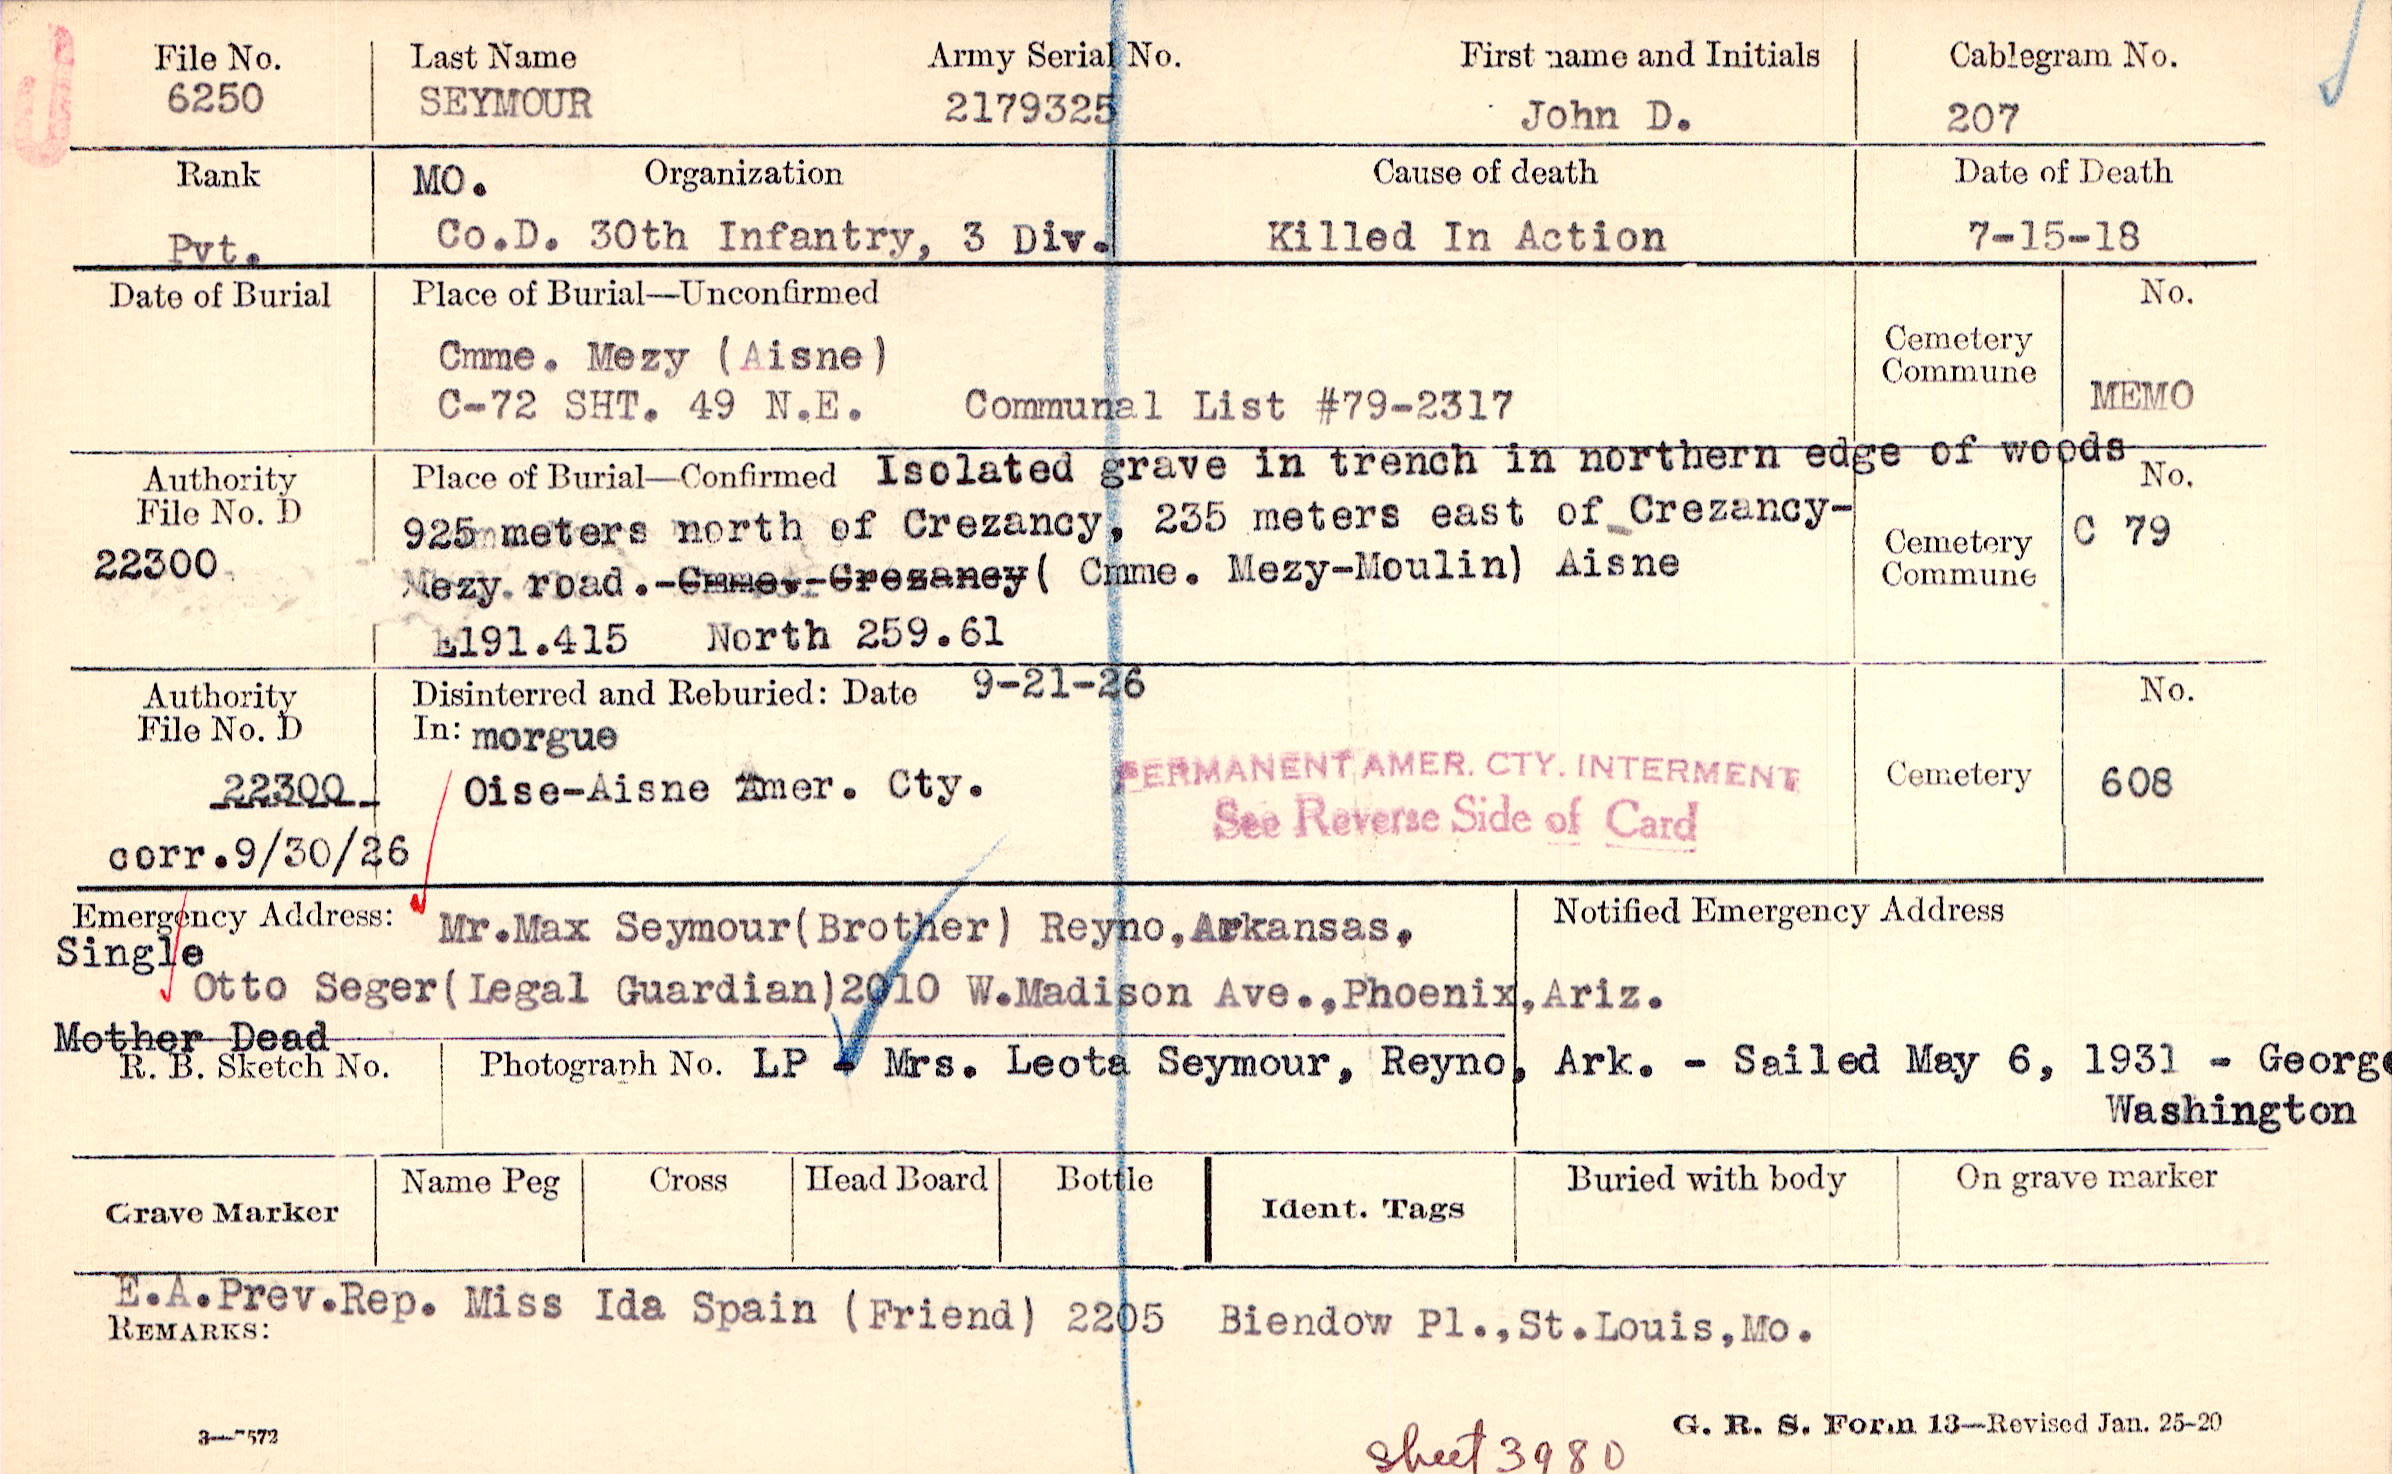 File No. Last Name Army Serial No. First name and Initials Cablegram No.
6250 SEYMOUR 2179325 John D. 207
Rank MO. Organization Cause of death Date of Death
Pvt. Co.D. 30th Infantry, 3 Div. Killed In Action 7-15-18
Date of Burial Place of Burial—Unconfirmed No.
Cmme. Mezy (Aisne) Cemetery
Commune
C-72 SHT. 49 N.E. Communal List #79-2317 MEMO
Authority Place of Burial—Confirmed Isolated grave in trench in northern edge of woods No.
File No. D 925 meters north of Crezancy, 235 meters east of Crezancy- Cemetery C 79
22300 Mezy road.-Cmme.-Crezancy( Cmme. Mezy-Moulin) Aisne Commune
E191.415 North 259.61
Authority Disinterred and Reburied: Date 9-21-26 No.
File No. D In: morgue
22300 Oise-Aisne Amer. Cty. PERMANENT AMER. CTY. INTERMENT Cemetery 608
See Reverse Side of Card
corr.9/30/26
Emergency Address: Mr.Max Seymour(Brother) Reyno,Arkansas. Notified Emergency Address
Single
Otto Seger(Legal Guardian)2010 W.Madison Ave.,Phoenix,Ariz.
Mother Dead
R. B. Sketch No. Photograph No. LP - Mrs. Leota Seymour, Reyno, Ark. - Sailed May 6, 1931 - George
Washington
Grave Marker Name Peg Cross Head Board Bottle Ident. Tags Buried with body On grave marker
E.A.Prev.Rep. Miss Ida Spain (Friend) 2205 Biendow Pl.,St.Louis,Mo.
REMARKS:
G. R. S. Form 13—Revised Jan. 25-20
sheet 3980